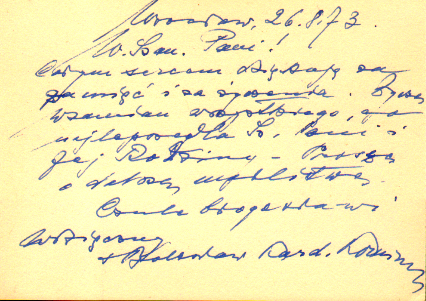 Wrocław, 26.8.73.
W. Szan. Pani!
Całym sercem dziękuję za
pamięć i za życzenia. Życzę
wzamian wszystkiego, co
najlepsze dla Sz. Pani i
Jej Rodziny – Proszę
o dalszą modlitwę.
Czule błogosławi
wdzięczny
+ Bolesław Kard. Kominek